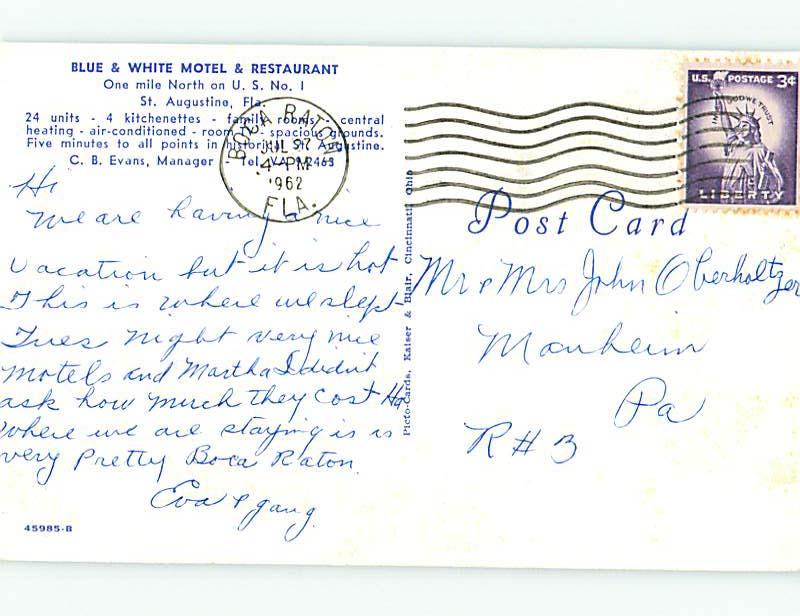 BLUE & WHITE MOTEL & RESTAURANT
One mile North on U. S. No. 1
St. Augustine, Fla.
24 units - 4 kitchenettes - family rooms - central
heating - air-conditioned - room - spacious grounds.
Five minutes to all points in historical St. Augustine.
C. B. Evans, Manager Tel. VA 9-2463
BOCA RATON
JUL 27
4 PM
1962
FLA.
U.S. POSTAGE 3¢
IN GOD WE TRUST
LIBERTY
Post Card
Hi
We are having a nice
vacation but it is hot
This is where we slept
Tues night very nice
motels and Martha I didnt
ask how much they cost Ha
where we are staying is is
very Pretty Boca Raton
Eva & gang
Mr & Mrs John Oberholtzer
Manheim
Pa
R # 3
Picto-Cards, Kaiser & Blair, Cincinnati, Ohio
45985-B